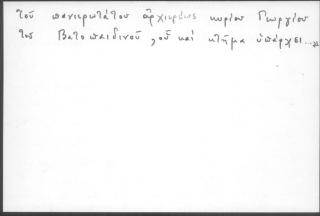 τοῦ πανιερωτάτου ἀρχιερέως κυρίου Γεωργίου
τοῦ Βατοπαιδινοῦ, οὗ καὶ κτῆμα ὑπάρχει...